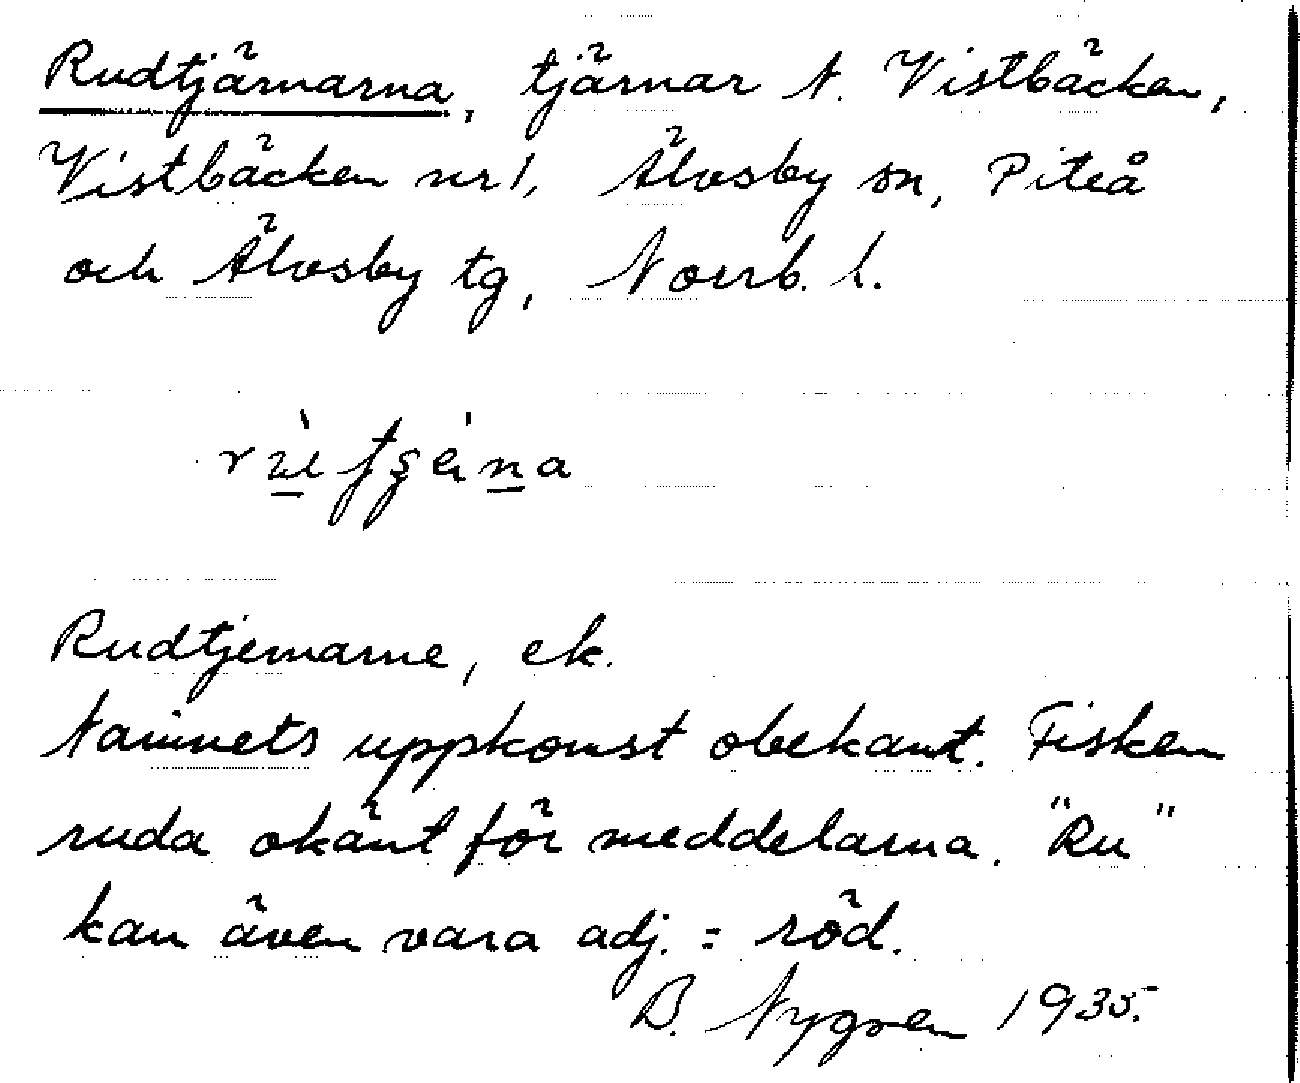 Rudtjärnarna, tjärnar N. Vistbäcken,
Vistbäcken nr 1, Älvsby sn, Piteå
och Älvsby tg, Norrb. l.
Rudtjernarne, ek.
Namnets uppkomst obekant. Fisken
ruda okänt för meddelarna. "Ru"
kan även vara adj. = röd.
B. Nygren 1935.